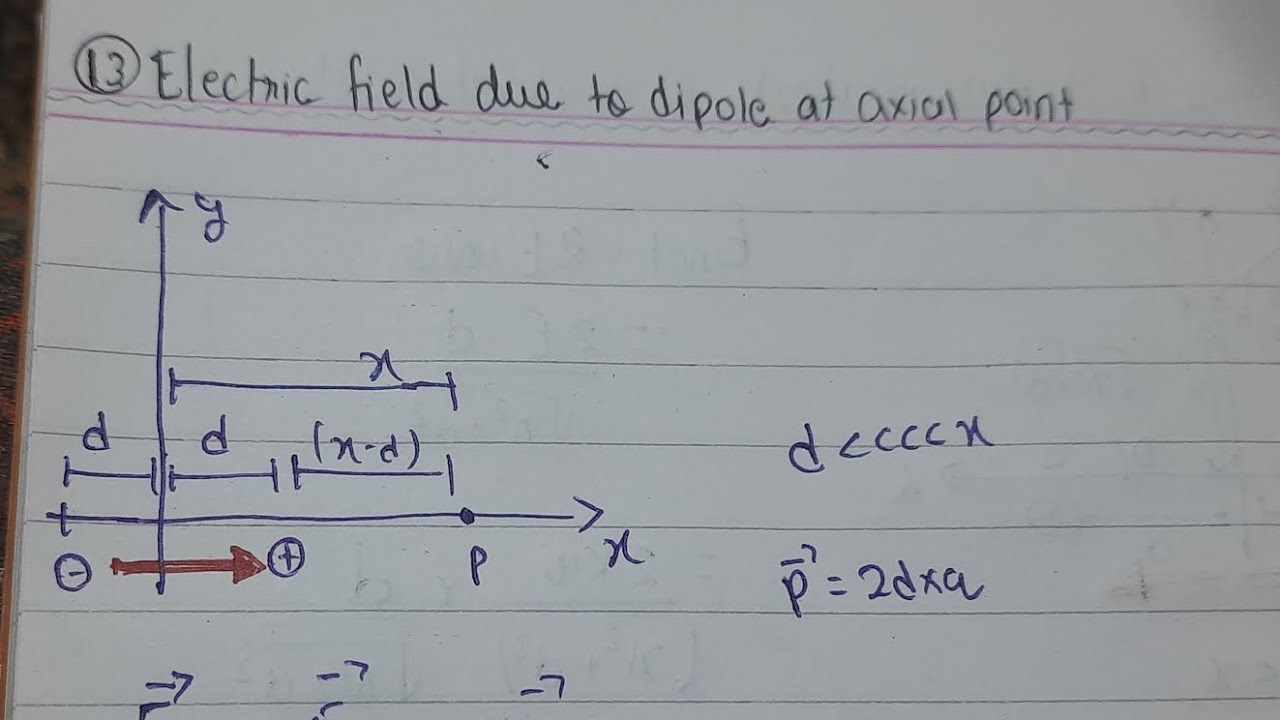 13 Electric field due to dipole at axial point
y
x
d d (x-d)
d <<<< x
x
⊖ ⊕ P
p⃗ = 2d×q